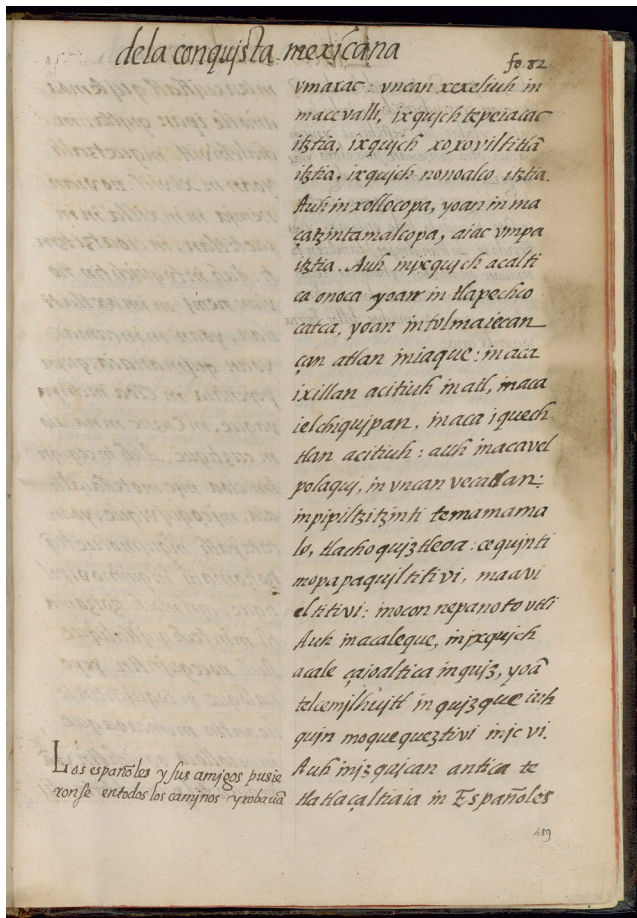 dela conqujsta mexicana
fo. 82
vmaxac: vncan xexeliuh in
macevalli, ixqujch tepeiacac
itztia, ixqujch xoxoviltitlã
itztia, ixqujch nonoalco itztia.
Auh in xollocopa, yoan in ma
çatzintamalcopa, aiac vmpa
itztia. Auh injxqujch acalti
ca onoca yoan in tlapechco
catca, yoan in tulmaiecan
çan atlan in iaque: in aca
ixillan acitiuh in atl, in aca
ielchiqujpan, in aca iquech
tlan acitiuh: auh in aca vel
polaqui, in vncan vecatlan:
in pipiltzitzinti temamama
lo, tlachoquiztleoa: cequinti
mopapaquiltitivi, maavi
eltitivi: in ocon nepanoto vtli
Auh in acaleque, in jxqujch
acale çaioaltica in quiz, yoã
tel cemjlhujtl in quizque iuh
quin moquequeztivi injc vi.
Auh in izquican antica te
tlatlaçaltiaia in Españoles
Los españoles y sus amigos pusie
ronse en todos los camjnos y robavã